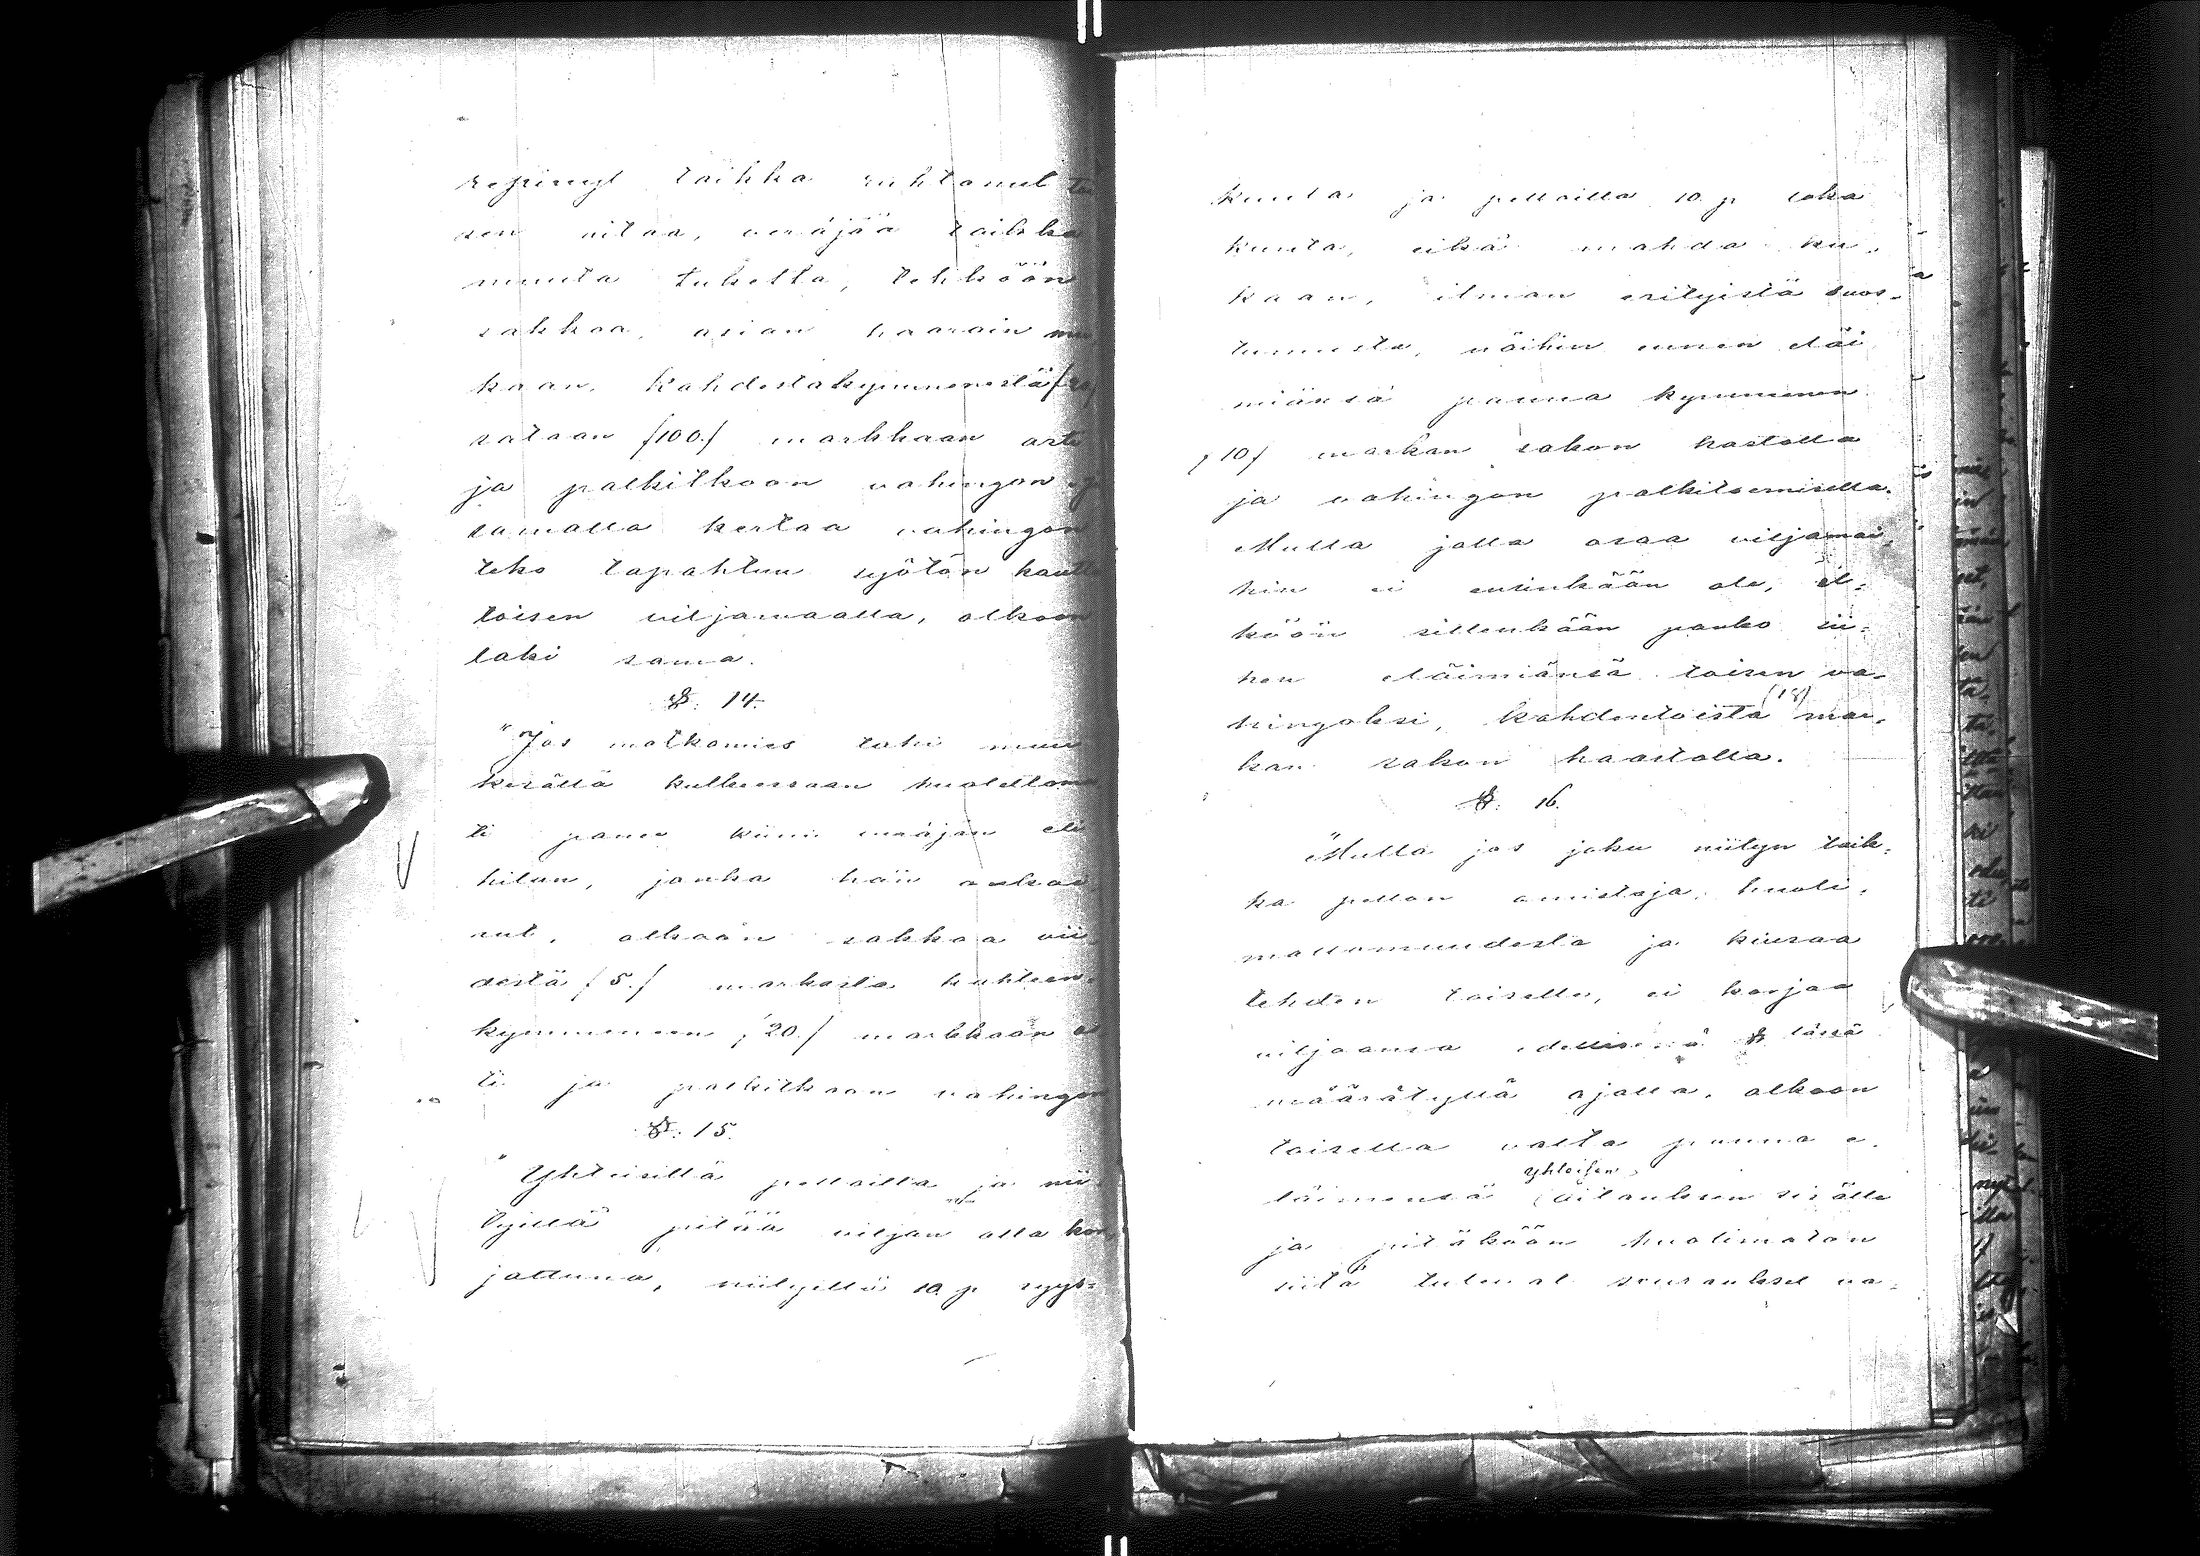 repinyt taikka ruhtonut toi
sen aitaa, veräjää taikka
muuta tuketta, tehköön
sakkoa, asian haarain mu
kaan, kahdestakymmenestä
sataan /100./ markkaan asti
ja palkitkoon vahingon
samalla kertaa vahingon
teko tapahtuu syötön kautta
toisen viljamaalla, olkoon
laki sama.
§. 14.
"Jos matkamies tahi muu
kesällä kulkeissaan huolettoma
ti panee kiini veräjän eli
hilun, jonka hän avasi
nut, olkoon sakkoa vii
destä /5./ markasta kahteen
kymmeneen /20./ markkaan as
ti ja palkitkoon vahingon
§. 15.
"Yhteisillä pelloilla ja nii
tyillä pitää viljan olla kor
jattuna, niityillä 10 p syys=
kuuta ja pelloilla 10. p loka
kuuta, eikä mahda ku=
kaan, ilman erityistä suos=
tumusta, näihin ennen eläi
miänsä panna kymmenen
/10/ markan sakon haastolla
ja vahingon palkitsemisella.
Mutta jolla osaa viljamai=
hin ei ensinkään ole, äl=
köön sillenkään panko sii=
hen eläimiänsä toisen va=
hingoksi, kahdentoista (12) mar=
kan sakon haastolla.
§. 16.
"Mutta jos joku niityn taik=
ka pellon omistaja, huoli=
mattomuudesta ja kiusaa
tehden toiselle, ei korjaa
viljaansa edellisessä § lässä
määrätyllä ajalla, olkoon
toisella valta panna e=
läimensä yhteisen aitauksen sisälle
ja pitäköön huolimaton
siitä tulevat seuraukset va=